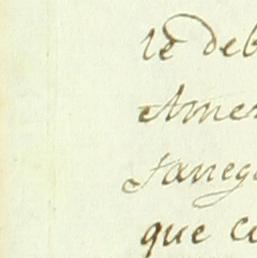 re deb
Amer
fanega
que co